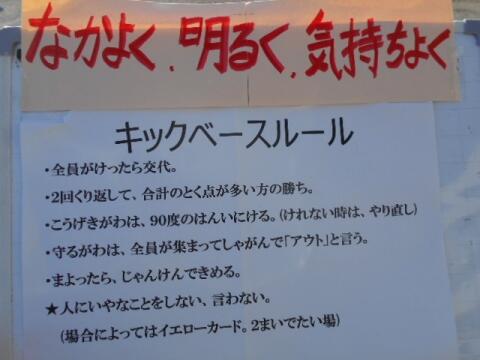 なかよく、明るく、気持ちよく
キックベースルール
・全員がけったら交代。
・2回くり返して、合計のとく点が多い方の勝ち。
・こうげきがわは、90度のはんいにける。(けれない時は、やり直し)
・守るがわは、全員が集まってしゃがんで「アウト」と言う。
・まよったら、じゃんけんできめる。
★人にいやなことをしない、言わない。
(場合によってはイエローカード。2まいでたい場)